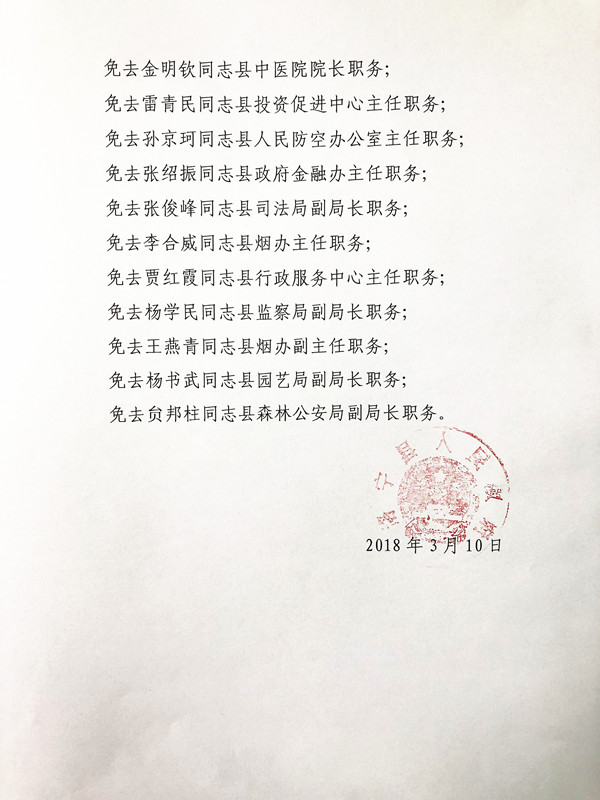 免去金明钦同志县中医院院长职务；
免去雷青民同志县投资促进中心主任职务；
免去孙京珂同志县人民防空办公室主任职务；
免去张绍振同志县政府金融办主任职务；
免去张俊峰同志县司法局副局长职务；
免去李合威同志县烟办主任职务；
免去贾红霞同志县行政服务中心主任职务；
免去杨学民同志县监察局副局长职务；
免去王燕青同志县烟办副主任职务；
免去杨书武同志县园艺局副局长职务；
免去贠邦柱同志县森林公安局副局长职务。
洛宁县人民政府
2018年3月10日